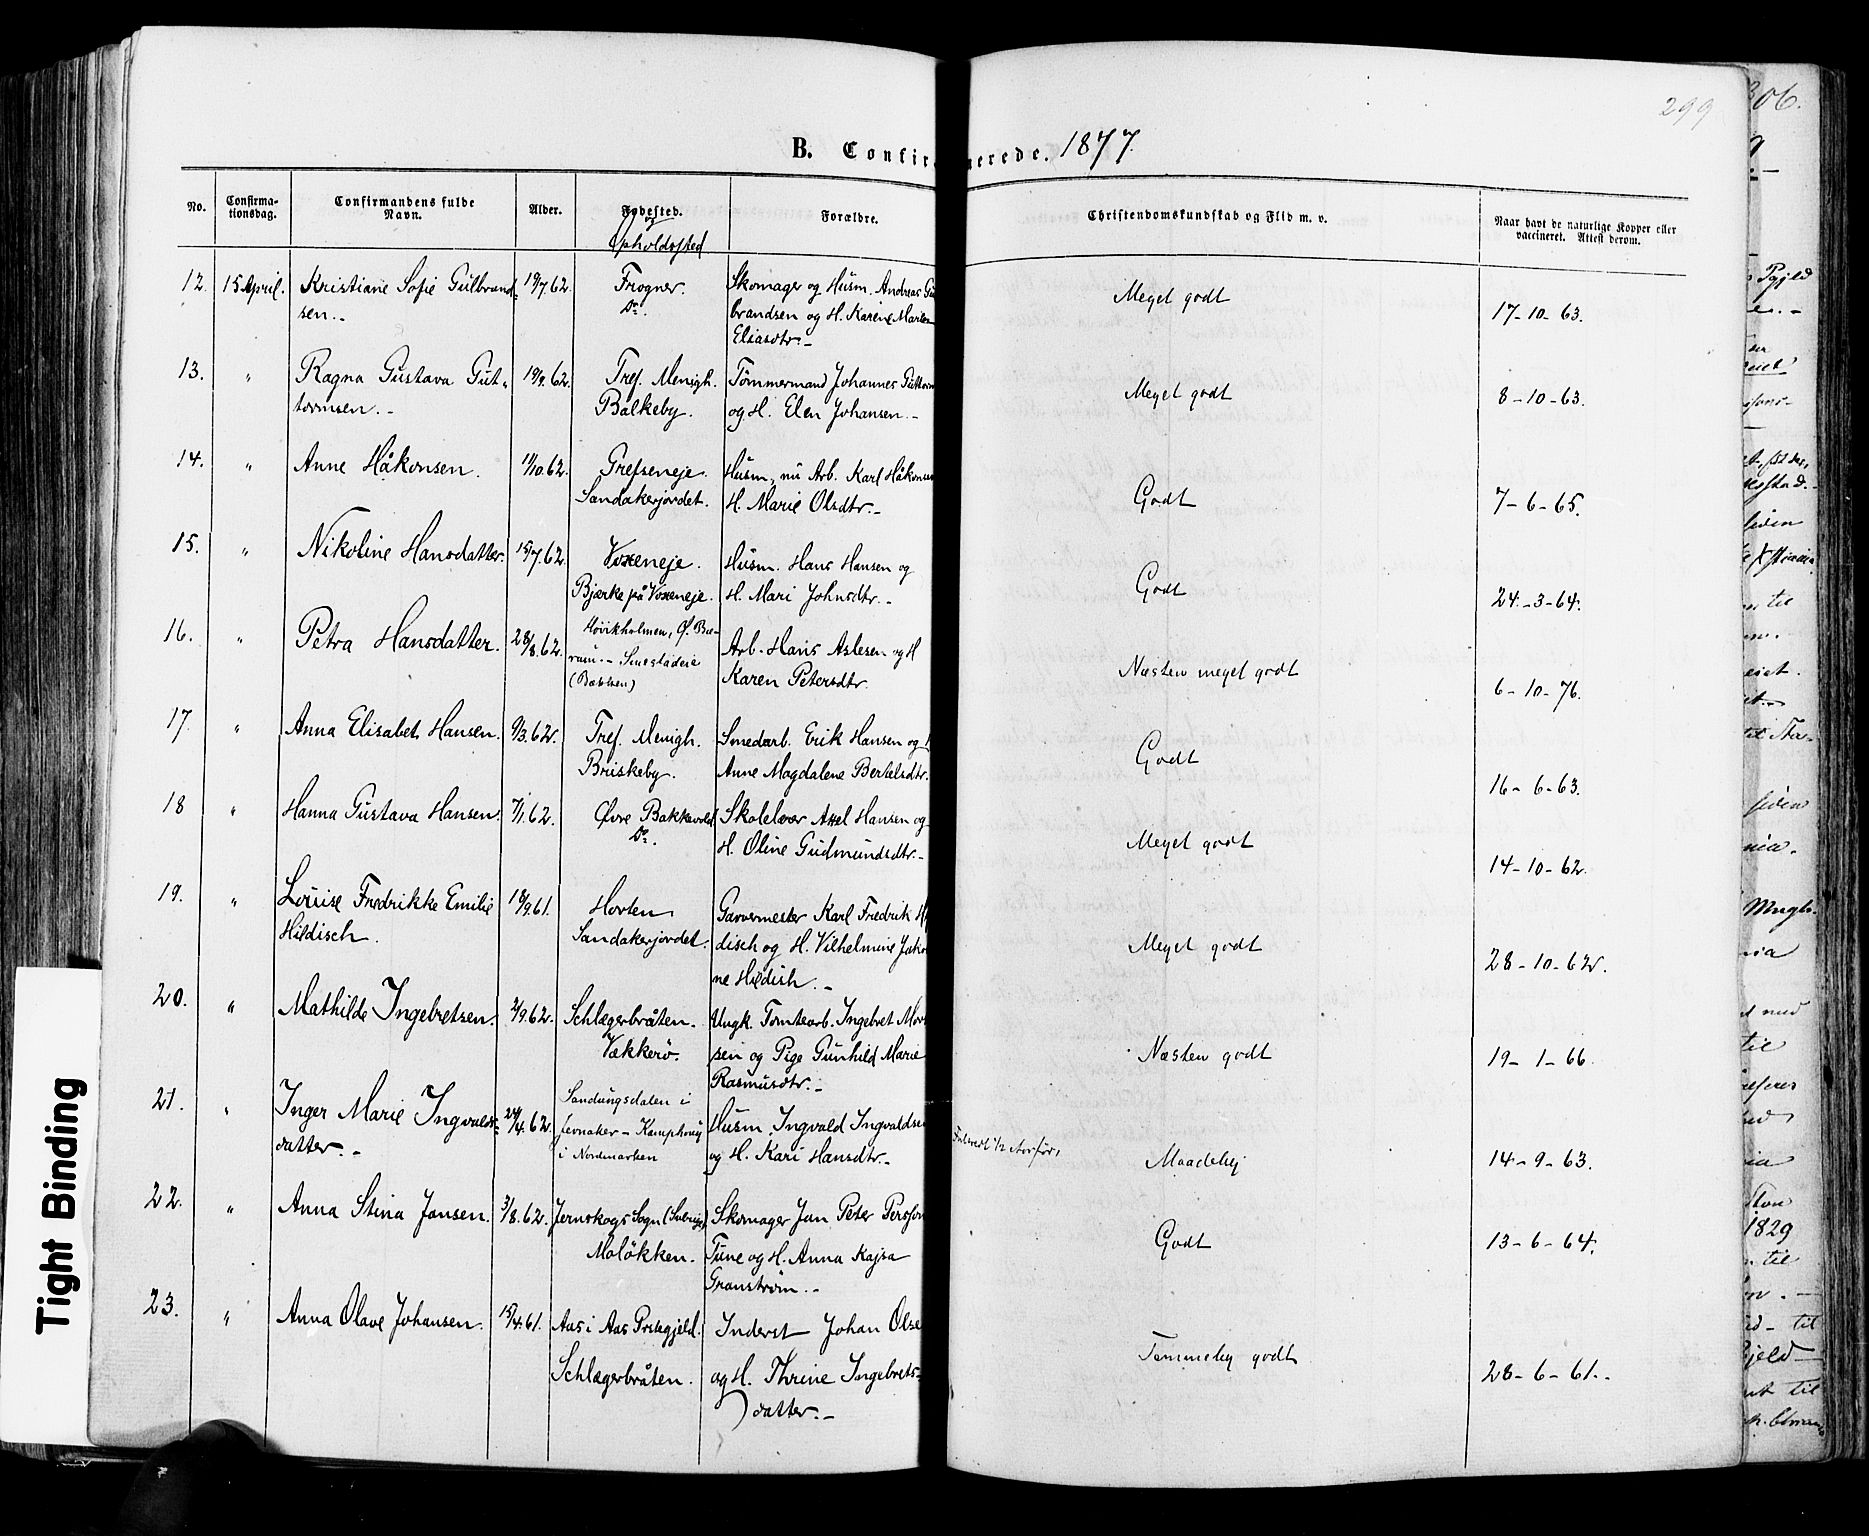 299
306.
B. Confir merede. 1877.
No.
Confirma-
tionsdag.
Confirmandens fulde
Navn.
Alder.
Fødested.
og
Opholdssted
Forældre.
Christendomskundskab og Flid m. v.
Naar havt de naturlige Kopper eller
vaccineret. Attest derom.
12. 15 April. Kristiane Sofie Gulbrand- 19/7.62. Frogner. Skomager og Husm. Andreas Gul
sen.- Do. brandsen og H. Karine Marie
Eliasdtr.-
Meget godt 17-10-63.
13. " Ragna Gustava Gut- 19/9.62. Tref. Menigh. Tømmermand Johannes Guttorm
tormsen.- Balkeby. og H. Elen Johansen.-
Meget godt 8-10-63.
14. " Anne Håkonsen. 11/10.62. Grefseneje. Husm, nu Arb. Karl Håkonsen
Sandakerjordet. H. Marie Olsdtr.-
Godt 7-6-65.
15. " Nikoline Hansdatter. 15/7.62. Voxeneje. Husm. Hans Hansen og
Bjærke på Voxeneje. H. Mari Johnsdtr.-
Godt 24-3-64.
16. " Petra Hansdatter. 28/8.62. Høvikholmen, Ø. Bæ-
rum.- Smestadeie Arb. Hans Aslesen og H
(Bakken) Karen Petersdtr.
Næsten meget godt 6-10-76.
17. " Anna Elisabet Hansen. 9/3.62. Tref. Menigh. Smedarb. Erik Hansen og H
Briskeby. Anne Magdalene Bertelsdtr.
Godt 16-6-63.
18 " Hanna Gustava Hansen. 7/1.62. Øvre Bakkevold Skolelærer Axel Hansen og
Do. H. Oline Gudmundsdtr.-
Meget godt 14-10-62.
19. " Louise Fredrikke Emilie 18/9.61. Horten Garvermester Karl Fredrik H
Hildisch. Sandakerjordet. disch og H. Vilhelmine Jako
ne Hildish.-
Meget godt 28-10-62.
20. " Mathilde Ingebretsen. 2/9.62. Schlægerbråten. Ungk. Tomtearb. Ingebret Mort
Vækkerø. sen og Pige Gunhild Marie
Rasmusdtr.-
Næsten godt 19-1-66.
21. " Inger Marie Ingvalds- 24/4.62. Sandungsdalen i
Jevnaker - Kamphoug Husm. Ingvald Ingvaldsen
datter.- i Nordmarken og H. Kari Hansdtr.-
Maadelig 14-9-63.
22. " Anna Stina Jansen. 3/8.62. Jernskogs Sogn (Sverige) Skomager Jan Peter Persson
Moløkken. Tune og H. Anna Kajsa
Granstrøm.-
Godt 13-6-64.
23. " Anna Olave Johansen. 15/4.61. Aas i Aas Prestegjeld. Inderst Johan Olse
Schlægerbråten. og H. Thrine Ingebrets-
datter.-
Temmelig godt 28-6-61.-
Tight Binding